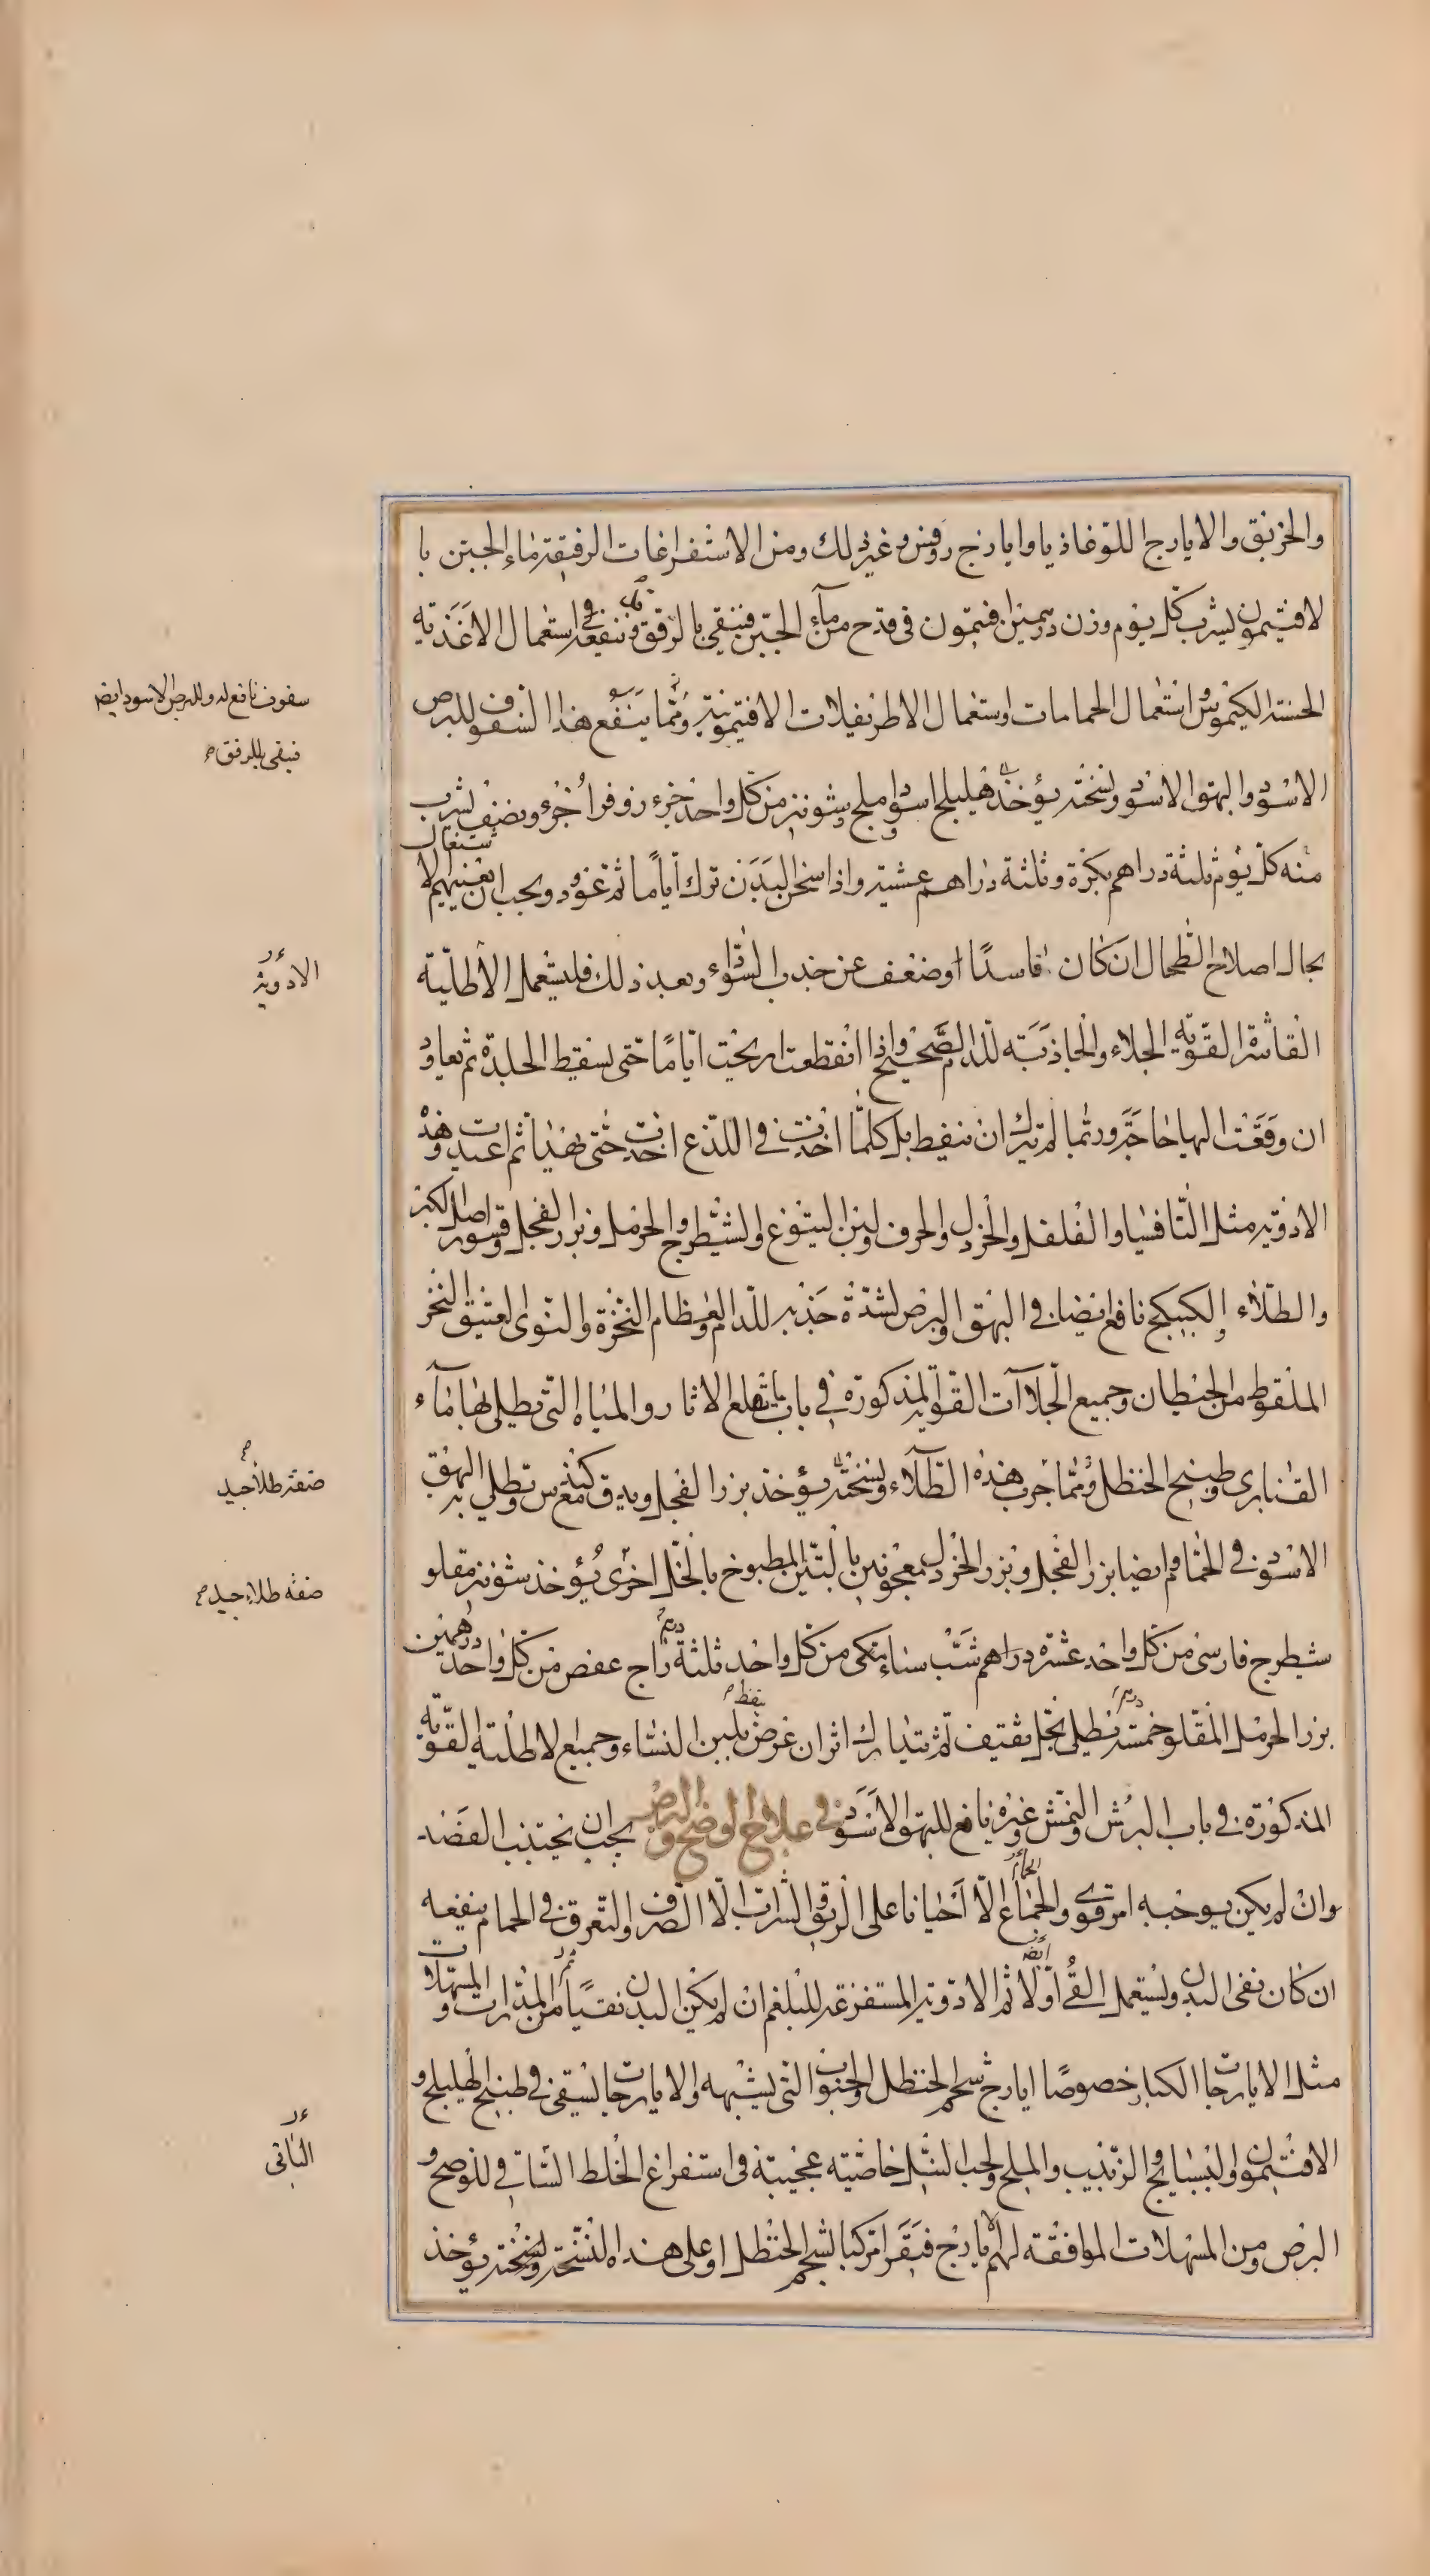 والخربق والايارج اللوغاذيا وايارج روفس وغير ذلك ومن الاستفراغات الرفيقة ماء الجبن با
لافتيمون يشرب كل يوم وزن درهمين افتيمون فى قدح من مآء الجبن فينقى بالرفق وينفعه استعمال الاغذية
الحسنة الكيموس واستعمال الحمامات واستعمال الاطريفلات الافتيمونية ومما ينفع هذا السفوف للبرص
الاسود والبهق الاسود ونسخته يؤخذ هليلج اسود واملج وشونيز من كل واحد جزء زوفرا جزء ونصف يشرب
منه كل يوم ثلثة دراهم بكرة وثلثة دراهم عشية واذا سخن البدن ترك اياما ثم عوود ويجب ان يعنيهم الاشتغال
بحال اصلاح الطحال ان كان فاسدا او ضعف عن جذب السوداء وبعد ذلك فليستعمل الاطلية
القاشرة القوية الجلاء والجاذبة للدم الصحيح واذا انقطعت اريحت اياما حتى يسقط الجلدة ثم يعاود
ان وقعت اليها حاجة وربما لم تترك ان تنفط بل كلما اخذت فى اللذع اخذت حتى يهدا ثم اعيدت وهذه
الادوية مثل التافسيا والفلفل والخردل والحرف ولبن اليتوع والشيطرج والحرمل وبزر الفجل وقشور اصل الكبر
والطلاء بالكبيكج نافع ايضا فى البهق والبرص لشدة جذبه للدم والعظام النخرة والنوى العتيق النخر
الملقوط من الحيطان وجميع الجلاآت القوية المذكورة فى باب قلع الاثار والمياه التى تطلى بها مآء
القنابرى وطبيخ الحنظل ومما جرب هذه الطلاء ونسخته يؤخذ بزر الفجل ويدق مع كندس ويطلى به البهق
الاسود فى الحمام وايضا بزر الفجل وبزر الخردل معجونين بالتين المطبوخ بالخل اخرى يؤخذ شونيز مقلو
شيطرج فارسى من كل واحد عشرة دراهم شب سناء مكى من كل واحد ثلثة دره زاج عفص من كل واحد درهمين
بزر الحرمل المقلو خمسة دره يطلى بخل ثقيف ثم يتدارك اثر ان عرض بلبن النساء وجميع الاطلية القوية
المذكورة فى باب البرش والنمش وغيره نافع للبهق الاسود فى علاج الوضح والبرص يجب ان يجتنب الفصد
وان لم يكن يوجبه امر قوى والجماع الا احيانا على الريق والشراب الا الصرف والتعرق فى الحمام ينفعه
ان كان نقى البدن ويستعمل القئ اولا ثم الادوية المستفرغة للبلغم ان لم يكن البدن نقيا ثم من المدرات والمسهلات
مثل الايارجات الكبار خصوصا ايارج شحم الحنظل والحبوب التى يشبهه والايارجات يسقى فى طبيخ الهليلج و
الافتيمون والبسبايج والزبيب والملح ولحب النيل خاصية عجيبة فى استفراغ الخلط الساقى للوضح و
البرص ومن المسهلات الموافقة لهم الايارج فيقرا مركبا بشحم الحنظل او على هذه النسخة ونسخته يؤخذ
سفوف نافع له وللبرص الاسود ايضا
فينقى بالرفق
الادوية
صفة طلاء جيد
صفة طلاء جيد